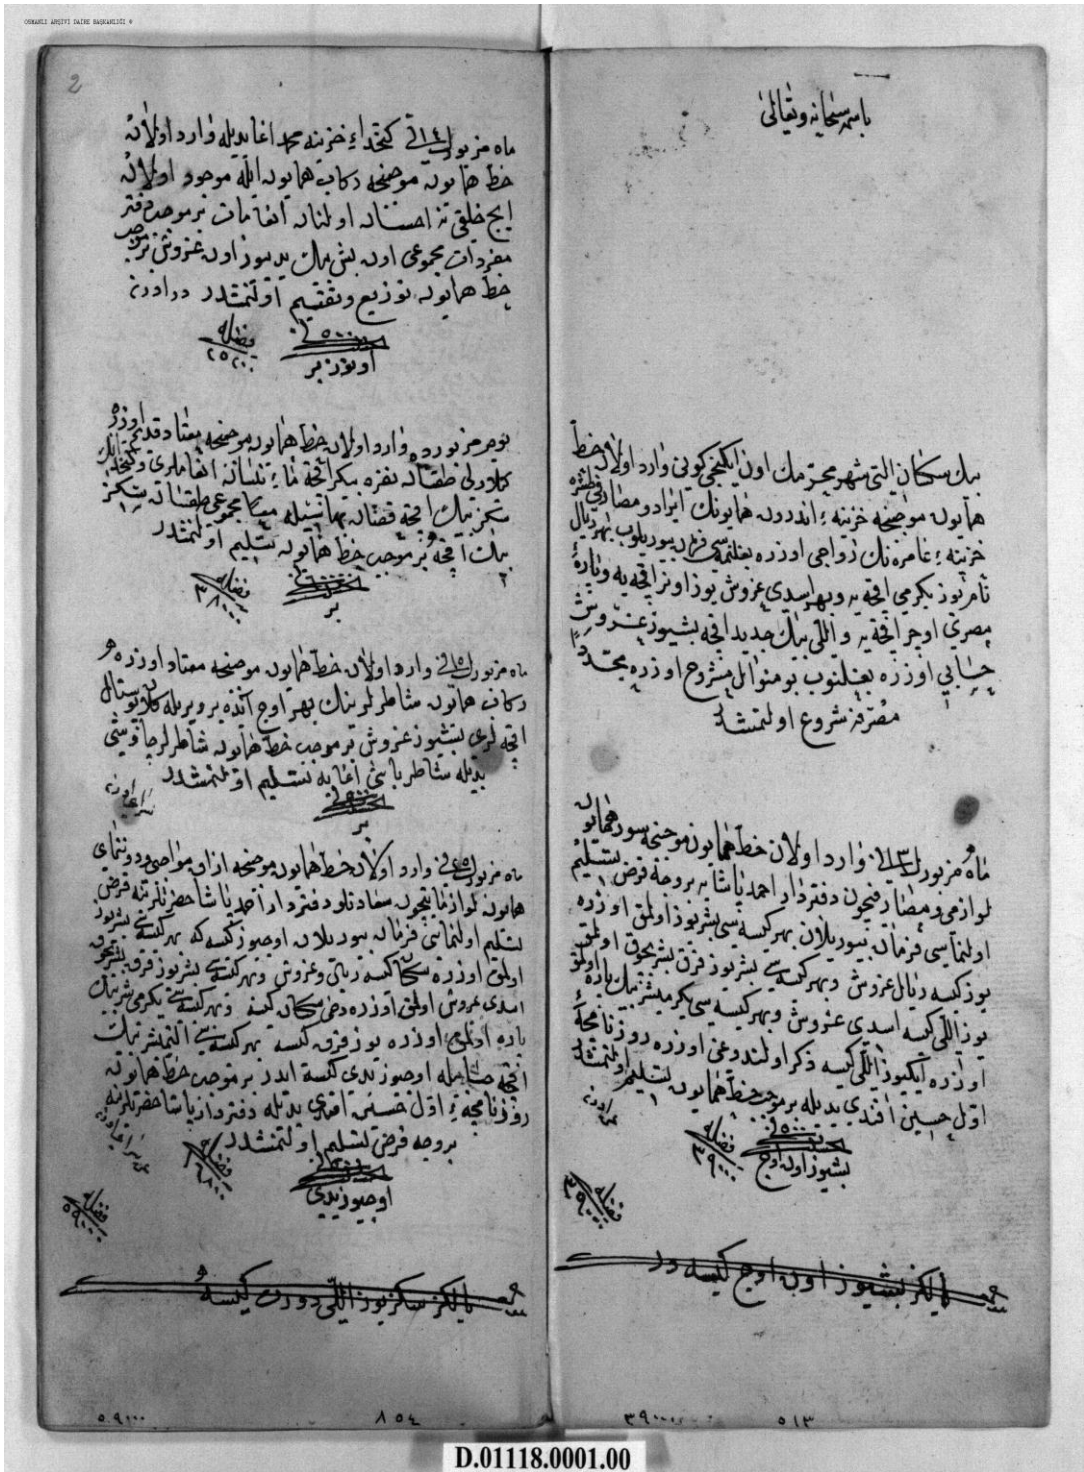 OSMANLI ARŞİVİ DAİRE BAŞKANLIĞI ©
باسمه سبحانه وتعالى
بيك سكسان التى شهر محرمك اون ايكنجى كونى وارد اولان خط
همايون موجبنجه خزينهٔ اندرون همايونك ايراد ومصارفى طشره
خزينهٔ عامره نك رواجى اوزره بغلنمسى فرمان بيوريلوب بهر ريال
تام يوز يكرمى اقچه يه وبهر اسدى غروش يوز اونر اقچه يه وپارهٔ
مصرى اوچر اقچه يه و اللى بيك جديد اقچه بشيوز غروش
حسابى اوزره بغلنوب بو منوال مشروح اوزره مجددا
مصرفه شروع اولنمشدر
ماه مزبورك ١٣ وارد اولان خط همايون موجبنجه سور همايون
لوازمى ومصارفيچون دفتردار احمد پاشايه بر وجه قرض تسليم
اولنماسى فرمان بيوريلان بهر كيسه سى بشر يوز اولمق اوزره
يوز كيسه ريال غروش وبهر كيسه سى بشر يوز قرق بشر بچوق اولمق
يوز اللى كيسه اسدى غروش وبهر كيسه سى يكرمى بشر بيك پاره اولمق
اوزره ايكيوز اللى كيسه ذكر اولندوغى اوزره روزنامچهٔ
اول حسين افندى يديله بر موجب خط همايون تسليم اولنمشدر
در ادرنه
بشيوز اون اوچ
فضله
٣٩٠٠٠
فضله
يالكز بشيوز اون اوچ كيسه در
٣٩٠٠٠
٥١٣
2
ماه مزبورك ١٤ كتخداء خزينه محمد اغا يديله وارد اولان
خط همايون موجبنجه ركاب همايون ايله موجود اولان
ايچ خلقى نه احسان اولنان انعامات بر موجب دفتر
مفردات مجموعى اون بش بيك يديوز اون غروش بر موجب
خط همايون توزيع وتقسيم اولنمشدر در ادرنه
اوتوز بر
فضله
يوم مزبورده وارد اولان خط همايون موجبنجه معتاد قديم اوزره
سكز بيك اقچه قفتان بهاسيله معا مجموعى طقسان سكز
بيك اقچه بر موجب خط همايون تسليم اولنمشدر
بر
فضله
٣٨٠٠٠
ماه مزبورك ١٥ وارد اولان خط همايون موجبنجه معتاد اوزره
ركاب همايون شاطرلرينك بهر اوچ آيده بر ويريله كلان پوستال
اقچه لرى بشيوز غروش بر موجب خط همايون شاطرلر چاوشى
يديله شاطر باشى اغايه تسليم اولنمشدر
بر
ماه مزبورك وارد اولان خط همايون موجبنجه
همايون لوازماتيچون سعادتلو دفتردار احمد پاشا حضرتلرينه قرض
تسليم اولنماسى فرمان بيوريلان اوچيوز كيسه كه بهر كيسه سى بشر يوز
اولمق اوزره سكسان كيسه ريال غروش وبهر كيسه سى بشر يوز قرق بشر بچوق
اسدى غروش اولمق اوزره دخى سكسان كيسه وبهر كيسه سى يكرمى بشر بيك
پاره اولمق اوزره يوز قرق كيسه بهر كيسه سى التمشر بيك
اقچه حسابيله اوچيوز يدى كيسه ايدر بر موجب خط همايون
روزنامچهٔ اول حسين افندى يديله دفتردار پاشا حضرتلرينه
بر وجه قرض تسليم اولنمشدر
اوچيوز يدى
فضله
فضله
٥٩٠٠٠
يالكز سكز يوز اللى دورت كيسه
٥٩٠٠٠
٨٥٤
D.01118.0001.00